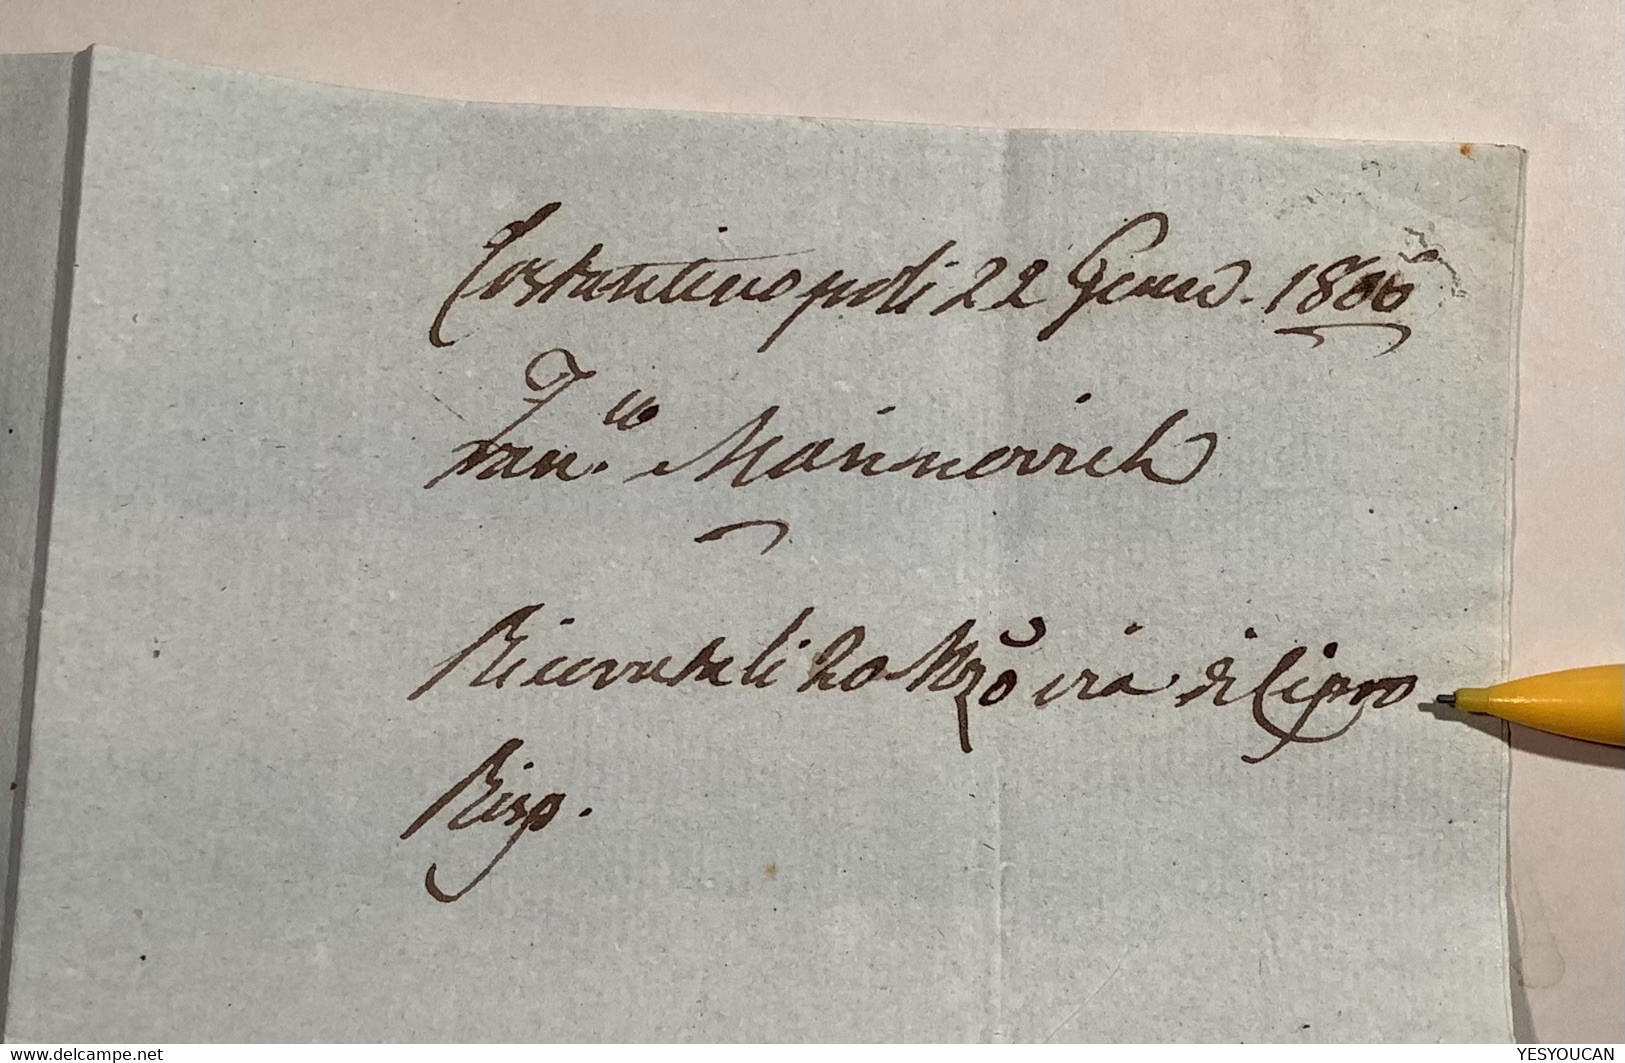 Costantinopoli 22 Genro. 1806
Franco. Marinovich
Ricevuta li 20 Mzo via di Cipro
Risp.
www.delcampe.net
YESYOUCAN